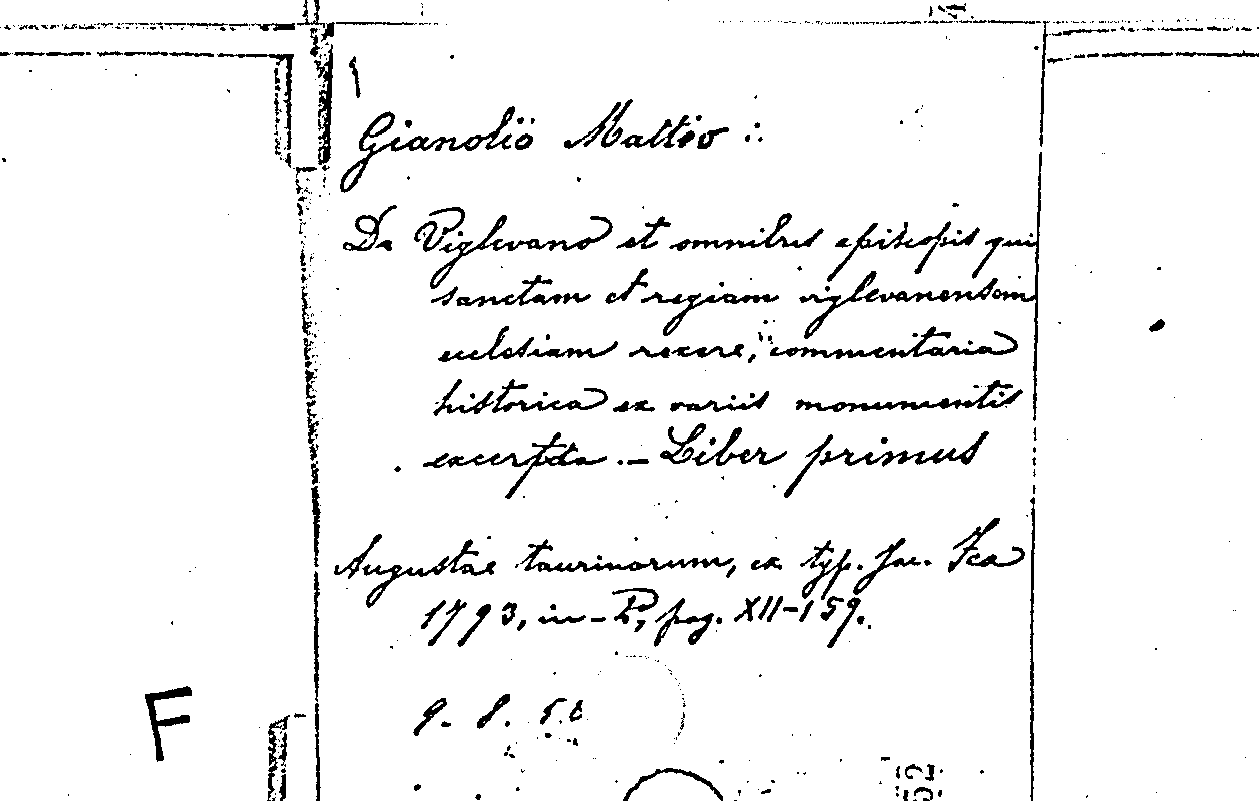 Gianolio Matteo :.
De Viglevano et omnibus episcopis qui
sanctam et regiam viglevanensem
ecclesiam rexere, commentaria
historica ex variis monumentis
excerpta. – Liber primus
Augustae taurinorum, ex typ. Jac. Fea
1793, in-P, pag. XII-159.
9. 8. 56
F
52